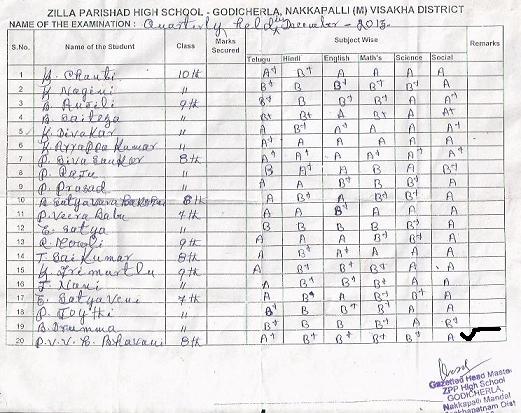 ZILLA PARISHAD HIGH SCHOOL - GODICHERLA, NAKKAPALLI (M) VISAKHA DISTRICT
NAME OF THE EXAMINATION : Quarterly held in December - 2013.
S.No. Name of the Student Class Marks Secured Subject Wise Remarks
Telugu Hindi English Math's Science Social
1 K. Chanti 10th A+ B+ A A A A+
2 K. Nagini " B B B+ B B+ B+
3 9th B+ B B+ B+ A A+
4 B. Saiteja " B+ B+ A B+ A A+
5 K. Divakar " A B+ A+ A A A+
6 K. Appppa Kumar " A+ A A B+ A A+
7 P. Siva Sankar 8th A+ A+ A+ A A A
8 P. Raju " B A A B A B+
9 P. Prasad " A A B+ B B+ A
10 8th A B+ A B+ A B+
11 P. Veera Babu 7th A A B+ A A A
12 E. Satya " B B B B B+ A
13 9th A A A B+ B+ A
14 T. Sai Kumar 8th A B+ A+ A A A
15 K. Trimurtlu 9th A B+ B+ B+ A A
16 J. Nani " A B+ B+ B+ A A
17 E. Satyaveni 7th A B+ A B+ B+ A
18 P. Joythi " B+ B B B+ A B+
19 B. Dramma " B+ B B B+ A B+
20 P.V.V.L. Bhavani 8th A+ B+ B+ B+ B+ A
Gazetted Head Master
ZPP High School
GODICHERLA,
Nakkapalli Mandal